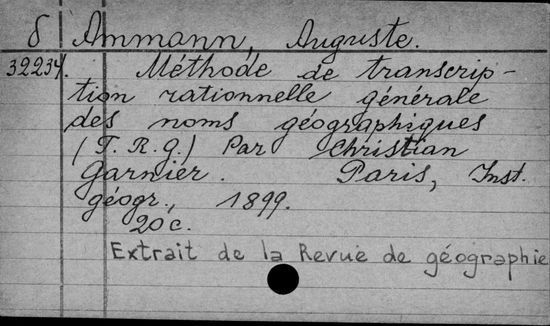 8 Ammann, Auguste.
32234. Méthode de transcrip-
tion rationnelle générale
des noms géographiques
(T. R. G.) Par Christian
Garnier. Paris, Inst.
géogr., 1899.
20 c.
Extrait de la Revue de géographie